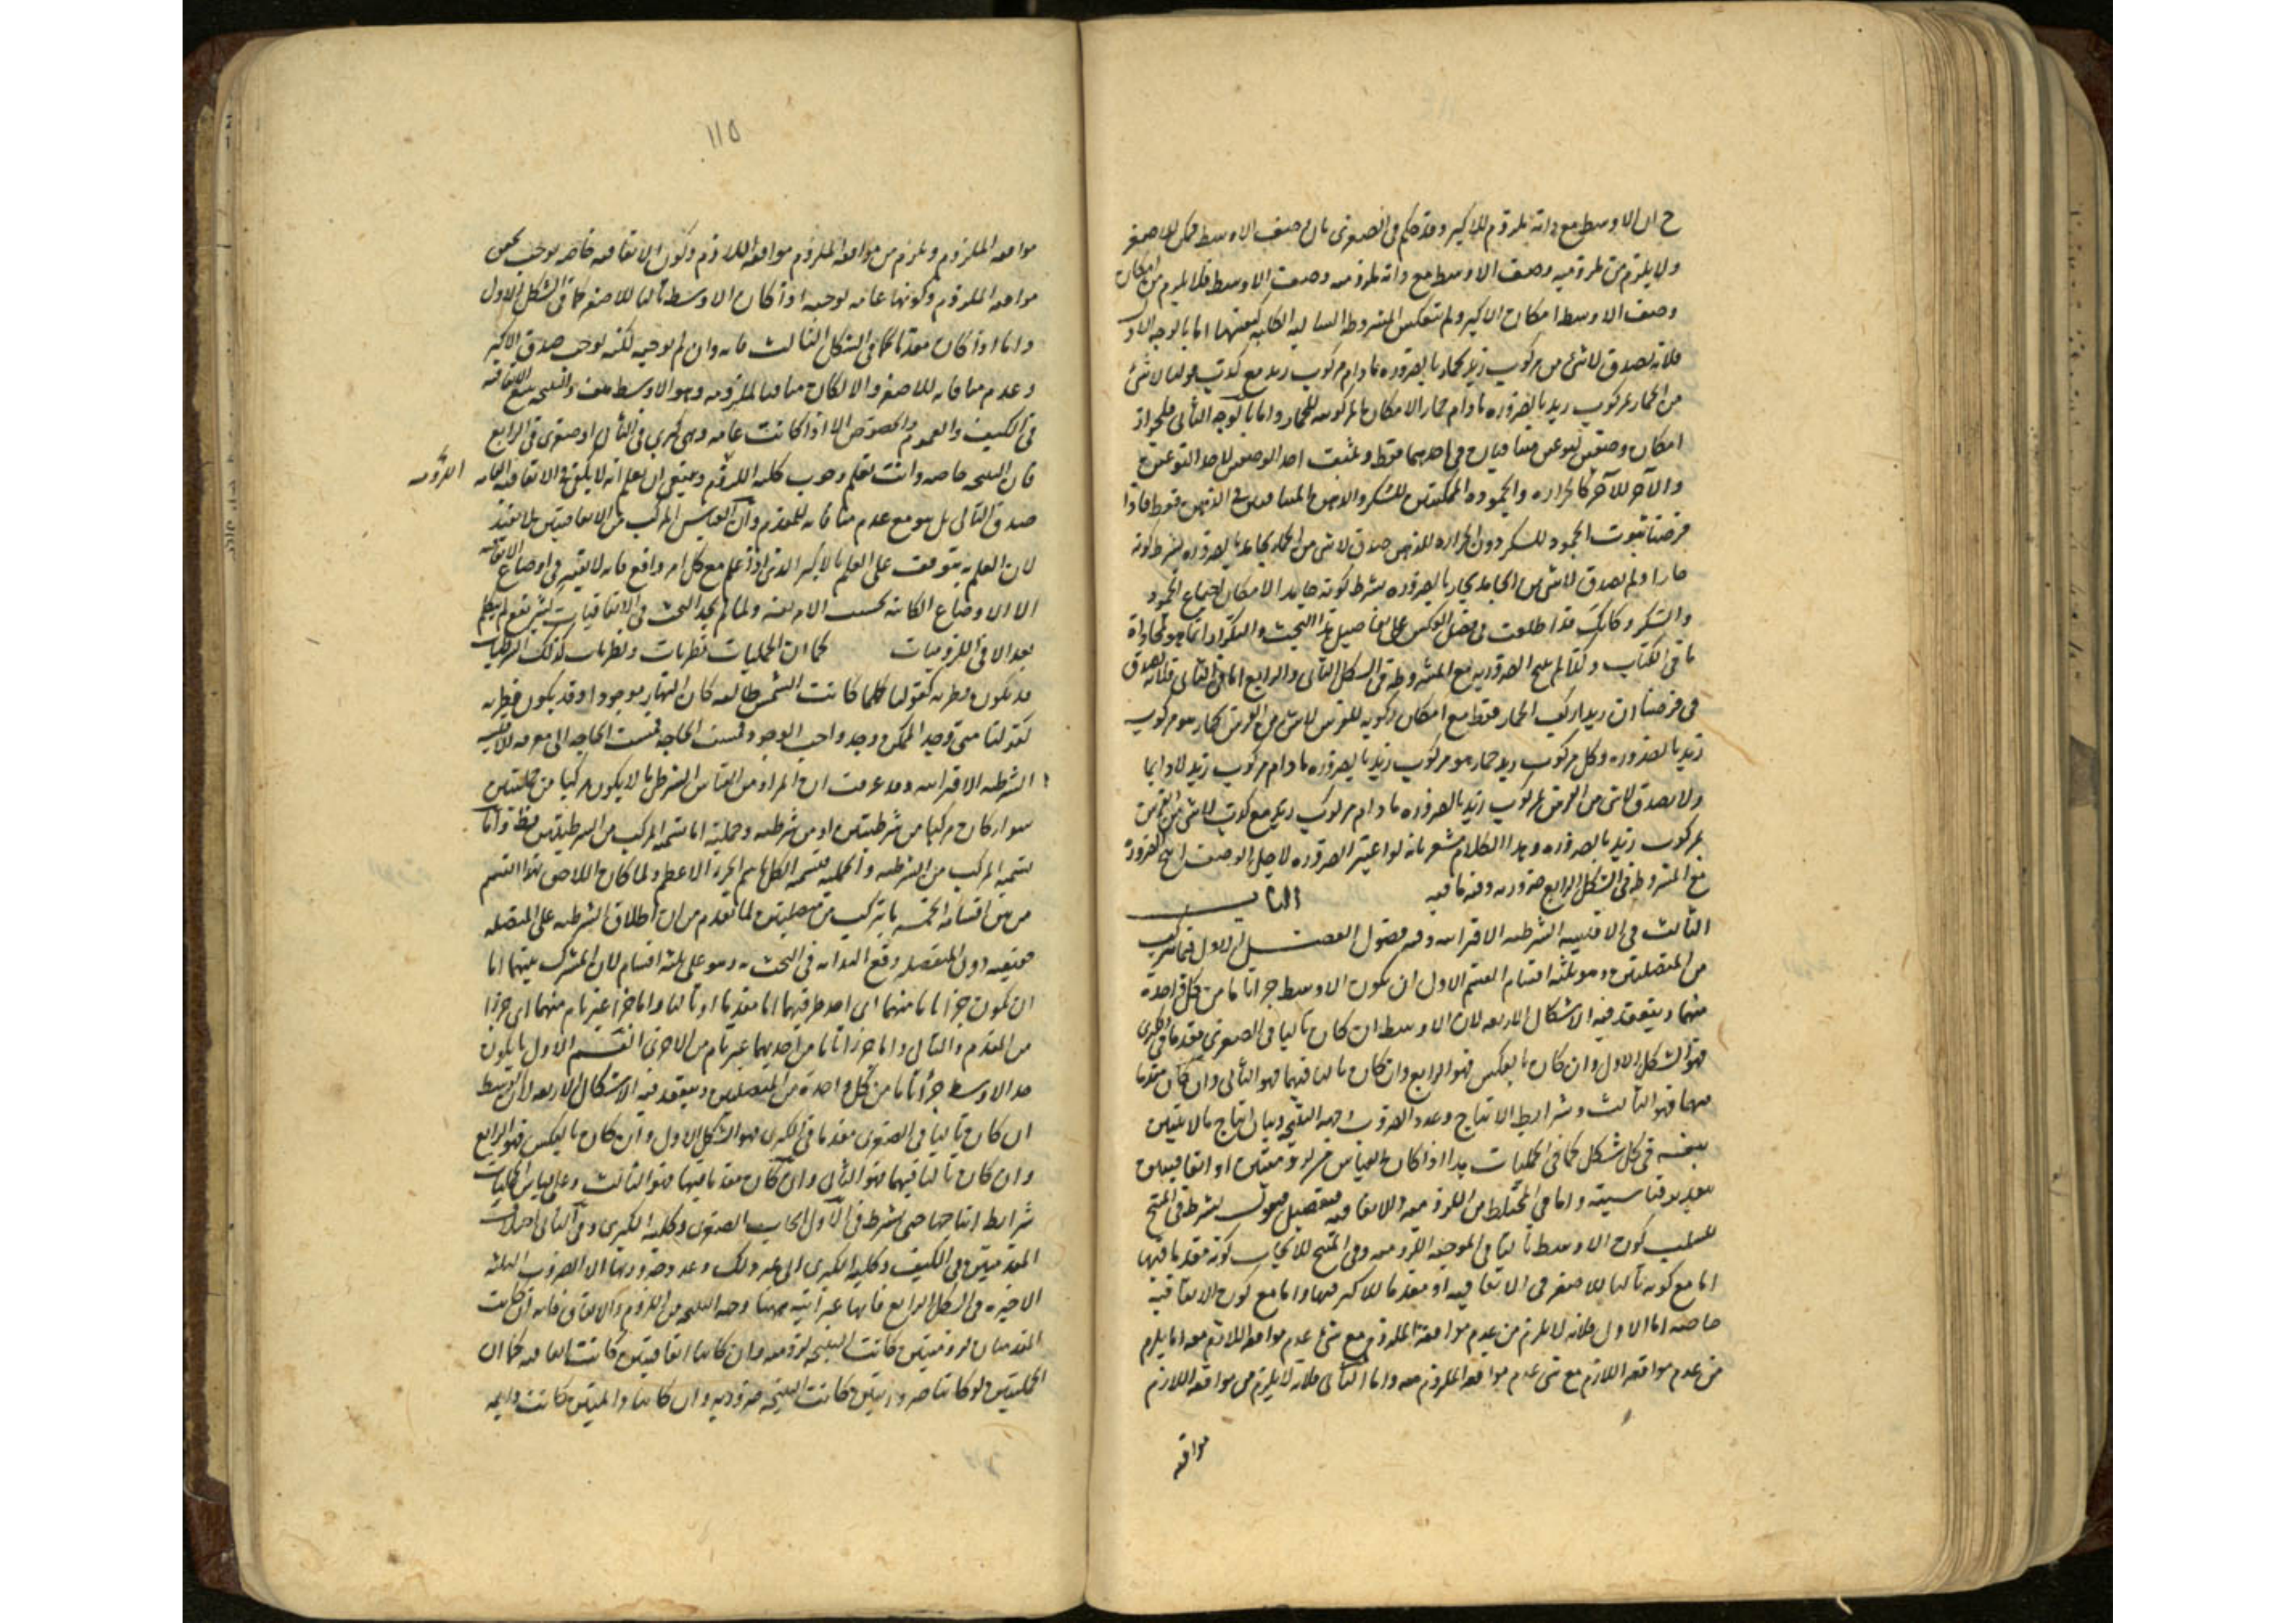 ح ان الاوسط مع ذاته ملزوم للاكبر وقد حكم في الصغرى بان وصف الاوسط ممكن للاصغر
ولا يلزم من ملزوميه وصف الاوسط مع ذاته ملزوميه وصف الاوسط فلا يلزم من امكان
وصف الاوسط امكان الاكبر ولم تنعكس المشروطه السالبه الكليه كنفسها اما بالوجه الاول
فلانه يصدق لا شئ من مركوب زيد بحمار بالضروره ما دام مركوب زيد مع كذب قولنا لا شئ
من الحمار بمركوب زيد بالضروره ما دام حمارا لامكان المركوبيه للحمار واما بالوجه الثانى فلجواز
امكان وصفين لنوعين متنافيان في احدهما فقط وثبت احد الوصفين لاحد النوعين
والآخر للآخر كالحراره والجموده الممكنتين للسكر والدهن المتنافيين في الدهن فقط فاذا
فرضنا ثبوت الجمود للسكر دون الحراره للدهن صدق لا شئ من الحار بجامد بالضروره بشرط كونه
حارا ولم يصدق لا شئ من الجامد بحار بالضروره بشرط كونه جامدا لامكان اجتماع الجمود
والسكر وكانك قد اطلعت في فصل العكس على تفاصيل هذا البحث والتكرار انما هو لمحاذاة
ما في الكتاب وكذا لم ينتج الضروريه مع المشروطه في الشكل الثانى والرابع اما في الثانى فلانه يصدق
في فرضنا ان زيدا ركب الحمار فقط مع امكان ركوبه للفرس لا شئ من الفرس بحمار هو مركوب
زيد بالضروره وكل مركوب زيد حمار هو مركوب زيد بالضروره ما دام مركوب زيد لا دايما
ولا يصدق لا شئ من الفرس بمركوب زيد بالضروره ما دام مركوب زيد مع كذب لا شئ من الفرس
بمركوب زيد بالضروره وهذا الكلام مشعر بانه لو اعتبر الضروره لاجل الوصف انتج الضرورة
مع المشروطه في الشكل الرابع ضروريه وفيه ما فيه الباب
الثالث في الاقيسه الشرطيه الاقترانيه وفيه فصول الفصل الاول فيما تركب
من المتصلتين وهو ثلثه اقسام القسم الاول ان يكون الاوسط جزا تاما من كل واحدة
منهما وينعقد فيه الاشكال الاربعه لان الاوسط ان كان تاليا في الصغرى مقدما في الكبرى
فهو الشكل الاول وان كان بالعكس فهو الرابع وان كان تاليا فيهما فهو الثانى وان كان مقدما
فيهما فهو الثالث وشرايط الانتاج وعدد الضروب وجهه النتيجه وبيان انتاج ما لا يتبين
بنفسه في كل شكل كما في الحمليات هذا اذا كان القياس من لزوميتين او اتفاقيتين
واما في المختلط من اللزوميه والاتفاقيه فتفصيل فنقول يشترط في المنتج
للسلب كون الاوسط تاليا في الموجبه اللزوميه وفي المنتج للايجاب كونه مقدما فيها
اما مع كونه تاليا للاصغر في الاتفاقيه او مقدما للاكبر فيها واما مع كون الاتفاقيه
خاصه اما الاول فلانه لا يلزم من عدم موافقه الملزوم مع شئ عدم موافقه اللازم معه انما يلزم
من عدم موافقه اللازم مع شئ عدم موافقه الملزوم معه واما الثانى فلانه لا يلزم من موافقه اللازم
موافقه
١١٥
موافقه الملزوم ويلزم من موافقه الملزوم موافقه اللازم وكون الاتفاقيه خاصه يوجب تحقق
موافقه الملزوم وكونها عامه يوجبه اذا كان الاوسط تاليا للاصغر كما في الشكل الاول
واما اذا كان مقدما كما في الشكل الثالث فانه وان لم يوجبه لكنه يوجب صدق الاكبر
وعدم منافاته للاصغر والا لكان منافيا لملزومه وهو الاوسط هف والنتيجه تتبع الاتفاقيه
في الكيف والعموم والخصوص الا اذا كانت عامه وهى كبرى في الثانى او صغرى في الرابع
فان النتيجه خاصه وانت تعلم وجوب كليه اللزوم وينبغي ان يعلم انه لا يكفي في الاتفاقيه العامه
اللزوميه
صدق التالى بل هو مع عدم منافاته للمقدم وان القياس المركب من الاتفاقيتين لا يفيد
لان العلم به يتوقف على العلم بالاكبر الذى اذا علم مع كل امر واقع فانه لا يعتبر في اوضاع الاتفاقيه
الا الاوضاع الكائنه بحسب الامر نفسه ولما لم يجد البحث في الاتفاقيات كثير نفع لم يتكلم
بعد الا في اللزوميات كما ان الحمليات فطريات ونظريات كذلك الشرطيات
قد يكون فطريه كقولنا كلما كانت الشمس طالعه كان النهار موجودا وقد يكون نظريه
كقولنا متى وجد الممكن وجد واجب الوجود فمست الحاجه الى معرفه الاقيسه
الشرطيه الاقترانيه وقد عرفت ان المراد من القياس الشرطى ما لا يكون مركبا من حمليتين
سواء كان مركبا من شرطيتين او من شرطيه وحمليه اما تسميه المركب من الشرطيتين فظ واما
تسميه المركب من الشرطيه والحمليه فتسميه الكل باسم الجزء الاعظم ولما كان
من بين اقسامه الخمسه ما يتركب من متصلتين لما تقدم من ان اطلاق الشرطيه على المتصله
حقيقيه دون المنفصله وقع البدايه في البحث به وهو على ثلثه اقسام لان المشترك بينهما اما
ان يكون جزا تاما منهما اى احد طرفيهما اما مقدما او تاليا واما جزا غير تام منهما اى جزا
من المقدم والتالى واما جزا تاما من احديهما غير تام من الاخرى القسم الاول ما يكون
حد الاوسط جزا تاما من كل واحدة من المتصلتين وينعقد فيه الاشكال الاربعه لان الاوسط
ان كان تاليا في الصغرى مقدما في الكبرى فهو الشكل الاول وان كان بالعكس فهو الرابع
وان كان تاليا فيهما فهو الثانى وان كان مقدما فيهما فهو الثالث وعلى قياس الحمليات
شرايط انتاجها حتى يشترط في الاول ايجاب الصغرى وكليه الكبرى وفي الثانى اختلاف
المقدمتين في الكيف وكليه الكبرى الى غير ذلك وعدد ضروبها الا الضروب الثلثه
الاخيره في الشكل الرابع فانها غير آتيه ههنا وجهه النتيجه من اللزوم والاتفاق فانه ان كانت
المقدمتان لزوميتين كانت النتيجه لزوميه وان كانتا اتفاقيتين كانت اتفاقيه كما ان
الحمليتين لو كانتا ضروريتين كانت النتيجه ضروريه وان كانتا دائمتين كانت دايمه